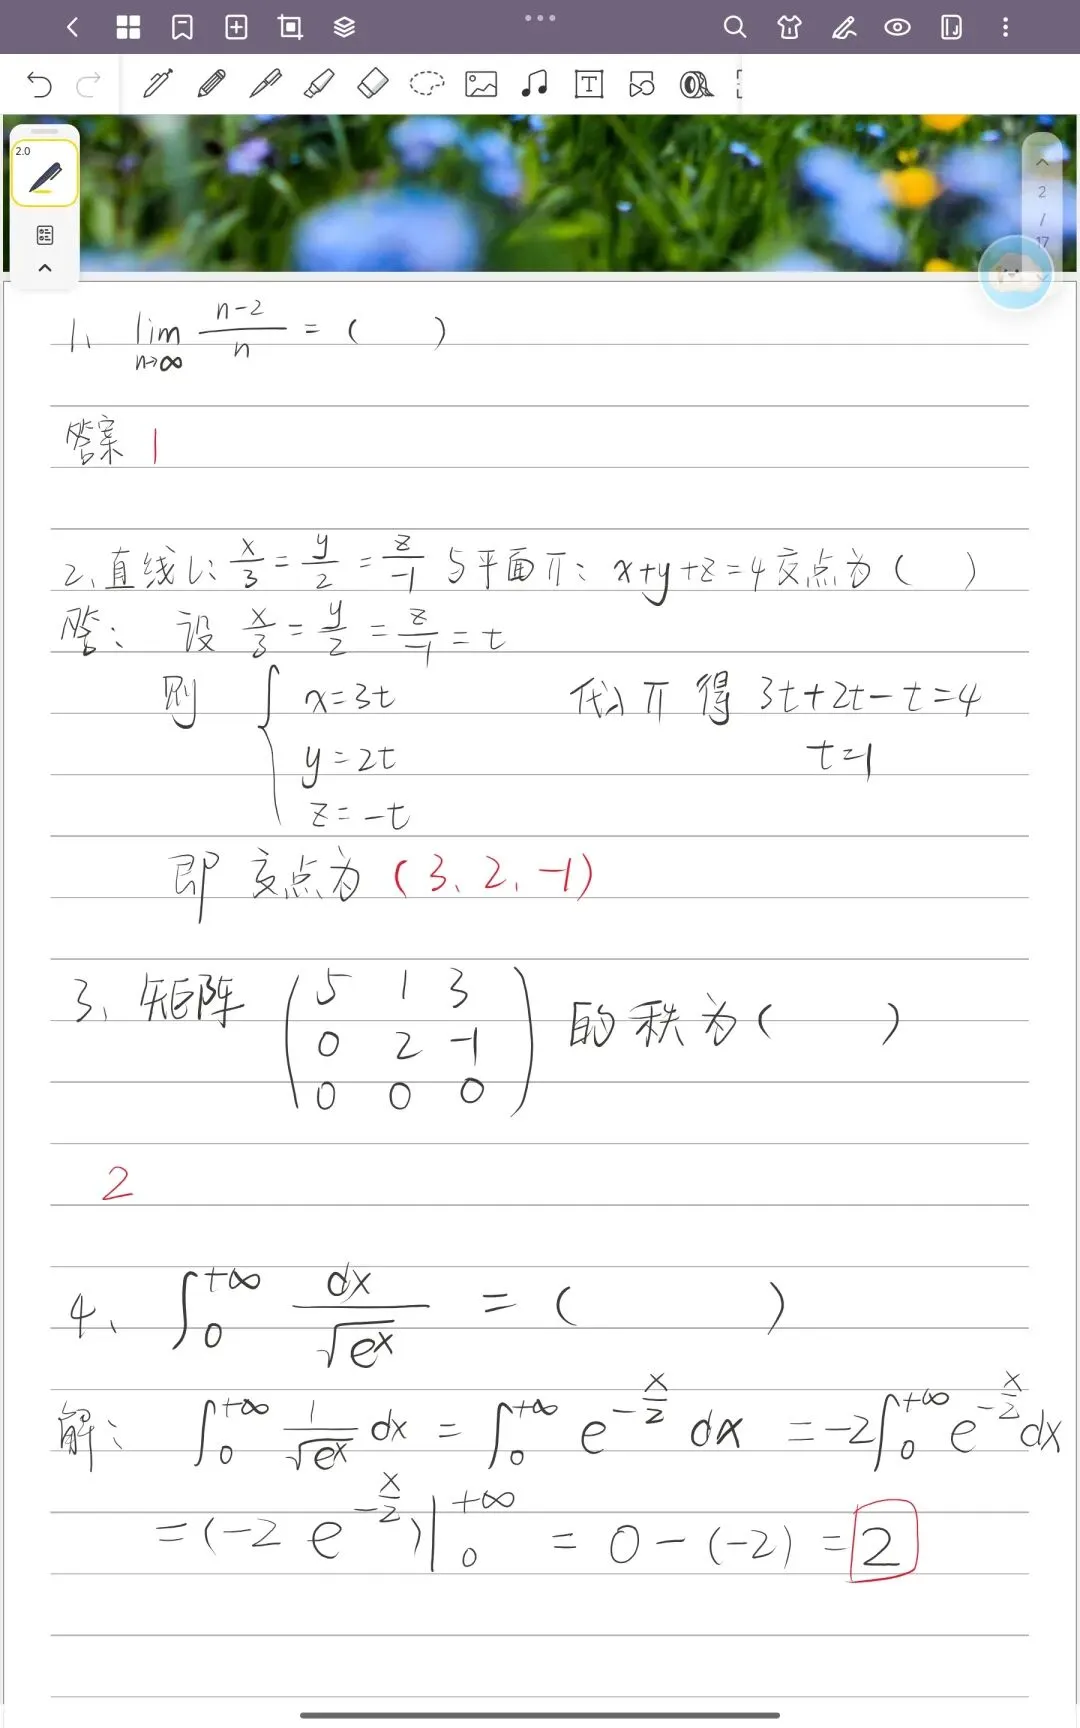 2.0
2
/
17
1、 lim n→∞ (n-2)/n = ( )
答案 1
2、直线L: x/3 = y/2 = z/-1 与平面π: x+y+z=4交点为( )
答: 设 x/3 = y/2 = z/-1 = t
则 { x=3t 代入π得 3t+2t-t=4
y=2t t=1
z=-t
即 交点为 (3、2,-1)
3、矩阵 ( 5 1 3 的秩为( )
0 2 -1
0 0 0 )
2
4、 ∫₀^{+∞} dx/√(e^x) = ( )
解: ∫₀^{+∞} 1/√(e^x) dx = ∫₀^{+∞} e^{-x/2} dx = -2∫₀^{+∞} e^{-x/2} dx
= (-2 e^{-x/2})|₀^{+∞} = 0-(-2) = 2